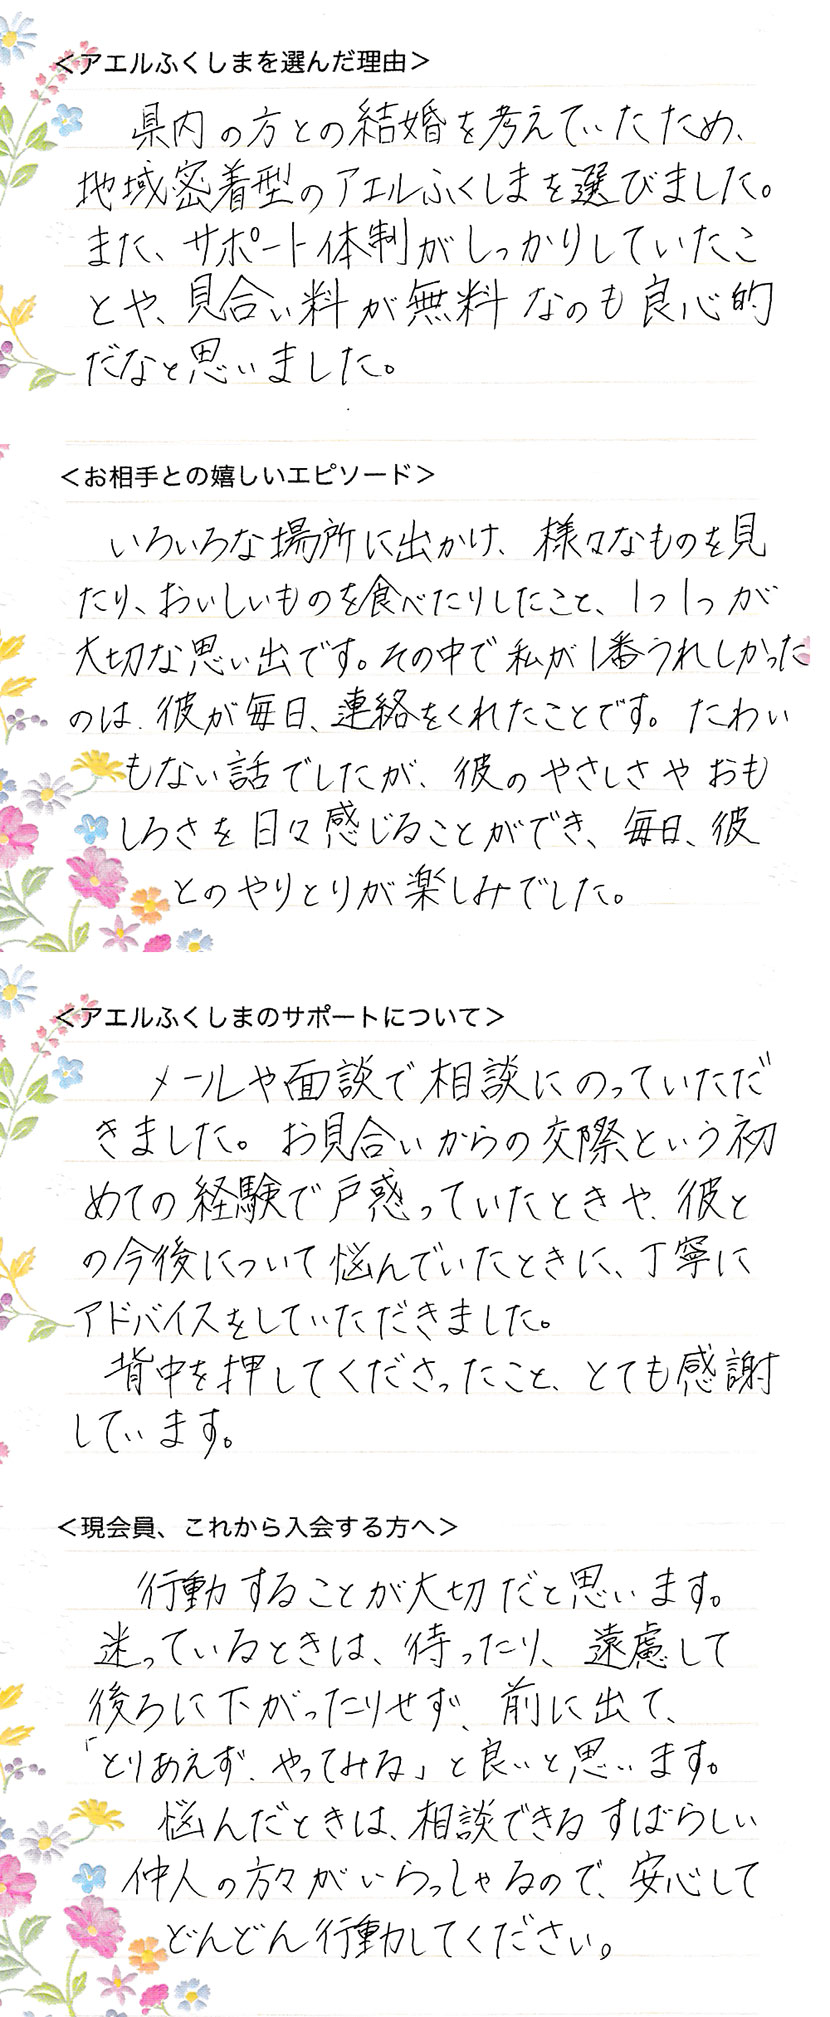 ＜アエルふくしまを選んだ理由＞
県内の方との結婚を考えていたため、
地域密着型のアエルふくしまを選びました。
また、サポート体制がしっかりしていたこ
とや、見合い料が無料なのも良心的
だなと思いました。
＜お相手との嬉しいエピソード＞
いろいろな場所に出かけ、様々なものを見
たり、おいしいものを食べたりしたこと、1つ1つが
大切な思い出です。その中で私が1番うれしかった
のは、彼が毎日、連絡をくれたことです。たわい
もない話でしたが、彼のやさしさやおも
しろさを日々感じることができ、毎日、彼
とのやりとりが楽しみでした。
＜アエルふくしまのサポートについて＞
メールや面談で相談にのっていただ
きました。お見合いからの交際という初
めての経験で戸惑っていたときや、彼と
の今後について悩んでいたときに、丁寧に
アドバイスをしていただきました。
背中を押してくださったこと、とても感謝
しています。
＜現会員、これから入会する方へ＞
行動することが大切だと思います。
迷っているときは、待ったり、遠慮して
後ろに下がったりせず、前に出て、
「とりあえず、やってみる」と良いと思います。
悩んだときは、相談できるすばらしい
仲人の方々がいらっしゃるので、安心して
どんどん行動してください。